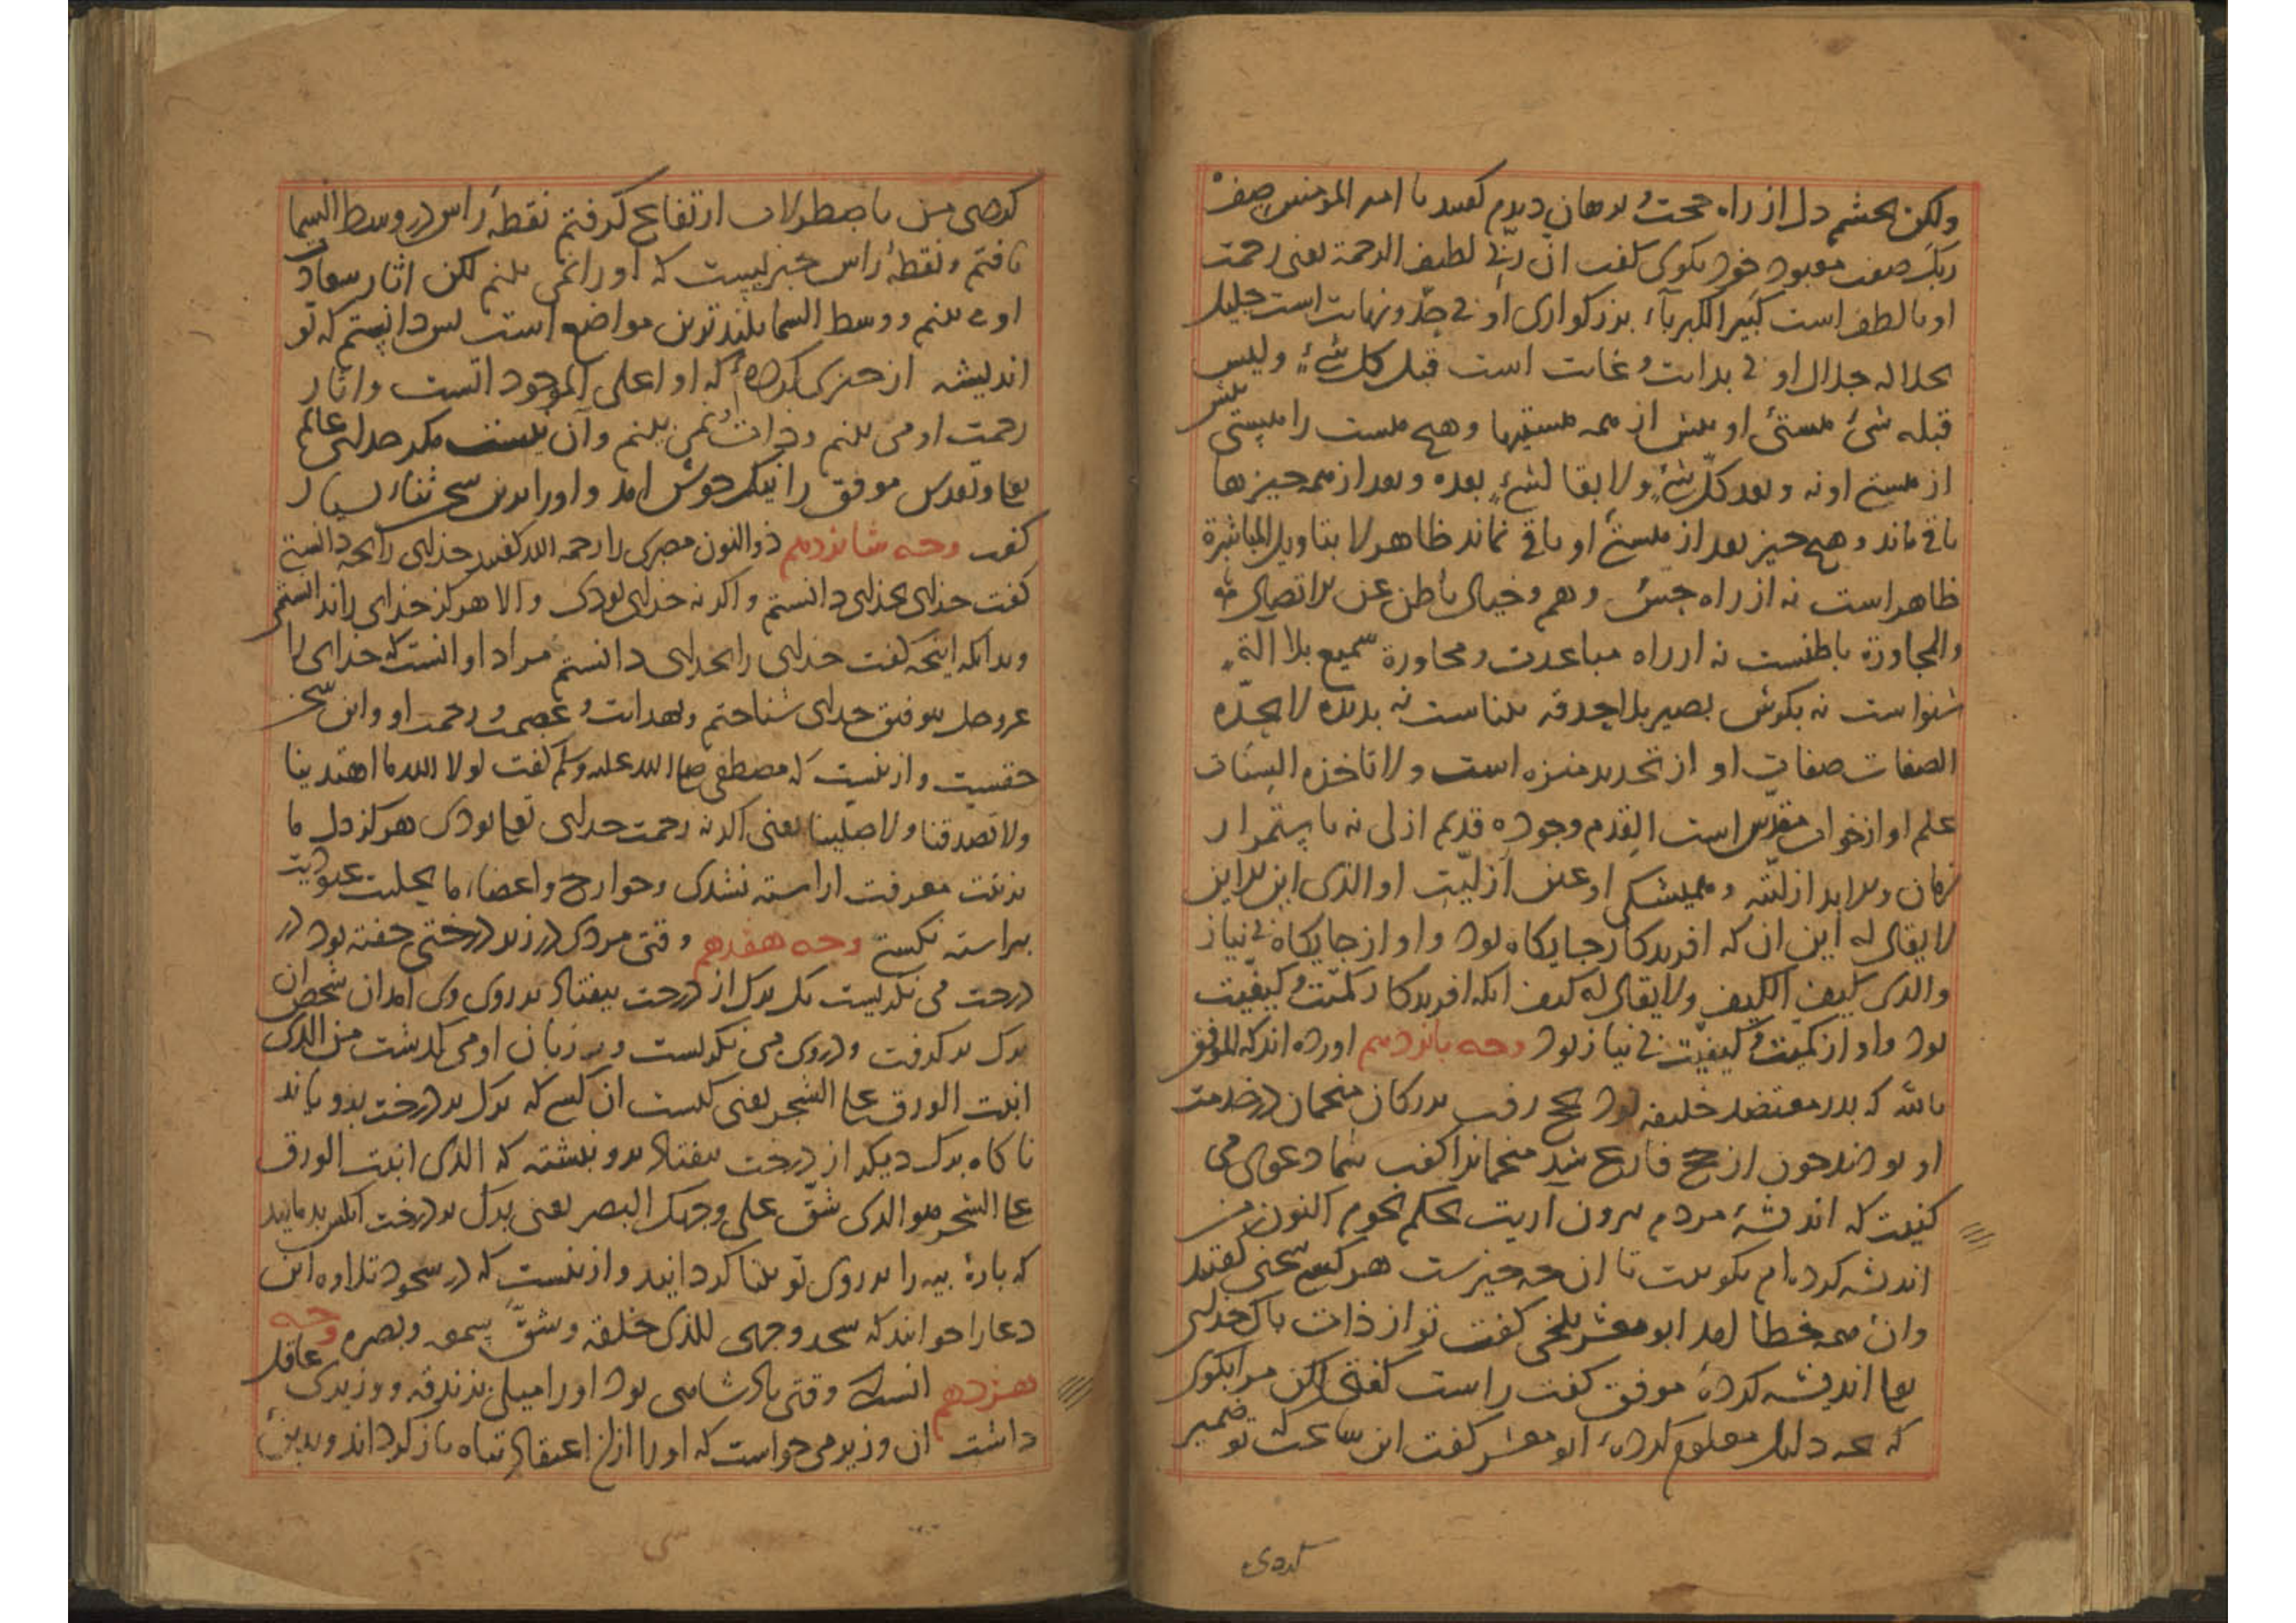 ولکن بچشم دل از راه حجت و برهان دیدم گفتند یا امیر المؤمنین صف
ربک صفت معبود خود بکوی کفت ان ربی لطیف الرحمة یعنی رحمت
او با لطف است کبیر الکبریآء بزرکواری او بی حد و نهایت است جلیل
الجلاله جلال او بی بدایت و غایت است قبل کل شیءٍ ولیس
قبله شیء هستی او پیش از همه هستیها و هیچ هست را هستی پیش
از هستی او نه و بعد کل شیءٍ ولا بقا لشیءٍ بعده و بعد از همه چیزها
باقی ماند و هیچ چیز بعد از هستی او باقی نماند ظاهر لا بتاویل المباشرة
ظاهر است نه از راه حس و هم و خیال باطن عن لا اتصال به
والمجاورة باطنست نه از راه مباعدت و مجاورة سمیع بلا آلة
شنواست نه بکوش بصیر بلا حدقه بیناست نه بدیده لا تحده
الصفات صفات او از تحدید منزه است ولا تاخذه السنات
علم او از خواب مقدس است القدم وجوده قدیم ازلی نه باستمرار
زمان والابد ازلیته و همیشکی او عین ازلیت او الذی این الاین
لا یقال له این ان که افریدکار جایکاه بود و او از جایکاه بی نیاز
والذی کیف الکیف ولا یقال له کیف انکه افریدکار کمیت و کیفیت
بود و او از کمیت و کیفیت بی نیاز بود وجه پانزدهم اورده اند که الموفق
بالله که پدر معتضد خلیفه بود بحج رفت بزرکان منجمان در خدمت
او بودند چون از حج فارغ شد منجمانرا کفت شما دعوی می
کنیت که اندیشهٔ مردم بیرون آریت بحکم نجوم اکنون من
اندیشه کرده ام بکوییت تا ان چه چیزست هر کسی سخنی کفتند
وان همه خطا امد ابو معشر بلخی کفت تو از ذات پاک خدای
تعا اندیشه کردهٔ موفق کفت راست کفتی لکن مرا بکوی
که بچه دلیل معلوم کردهٔ ابو معشر کفت این ساعت که تو ضمیر
کردی
کردی من باصطرلاب ارتفاع کرفتم نقطهٔ راس در وسط السما
یافتم و نقطهٔ راس چیزیست که او را نمی بینم لکن اثار سعادت
او می بینم و وسط السما بلندترین مواضع است پس دانستم که تو
اندیشه از چیزی کردهٔ که او اعلی الموجوداتست و اثار
رحمت او می بینم و ذاتش نمی بینم وآن نیست مکر خدای عالم
تعا و تقدس موفق را نیک خوش امد و او را بدین سخن ثناء بسیار
کفت وجه شانزدهم ذو النون مصری را رحمه الله کفتند خدای را بچه دانستی
کفت خدای بخدای دانستم و اکر نه خدای بودی والا هرکز خدای را ندانستمی
و بدانکه اینچه کفت خدای را بخدای دانستم مراد او انست که خدای را
عز وجل بتوفیق خدای شناختم و بهدایت و عصمت و رحمت او و این سخن
حقست و ازینست که مصطفی صلی الله علیه وسلم کفت لولا الله ما اهتدینا
ولا تصدقنا ولا صلینا یعنی اکر نه رحمت خدای تعا بودی هرکز دل ما
بزینت معرفت اراسته نشدی و جوارح و اعضاء ما بحلیت عبودیت
پیراسته نکشتی وجه هفدهم وقتی مردی در زیر درختی خفته بود در
درخت می نکریست یک برک از درخت بیفتاد بر روی وی امد ان شخص ان
برک بر کرفت و در وی می نکریست و بر زبان او می کذشت من الذی
انبت الورق علی الشجر یعنی کیست ان کسی که برک بر درخت برویاند
ناکاه برک دیکر از درخت بیفتاد برو نبشته که الذی انبت الورق
علی الشجر هو الذی شق علی وجهک البصر یعنی برک بر درخت انکس برویانید
که پارهٔ پیه را بر روی تو بینا کردانید و ازینست که در سجود تلاوه این
دعا را خوانند که سجد وجهی للذی خلقه وشق سمعه وبصره وجه
هزدهم انست که وقتی پادشاهی بود او را میلی بزندقه و وزیری عاقل
داشت ان وزیر می خواست که او را از ان اعتقاد تباه باز کرداند و بدین